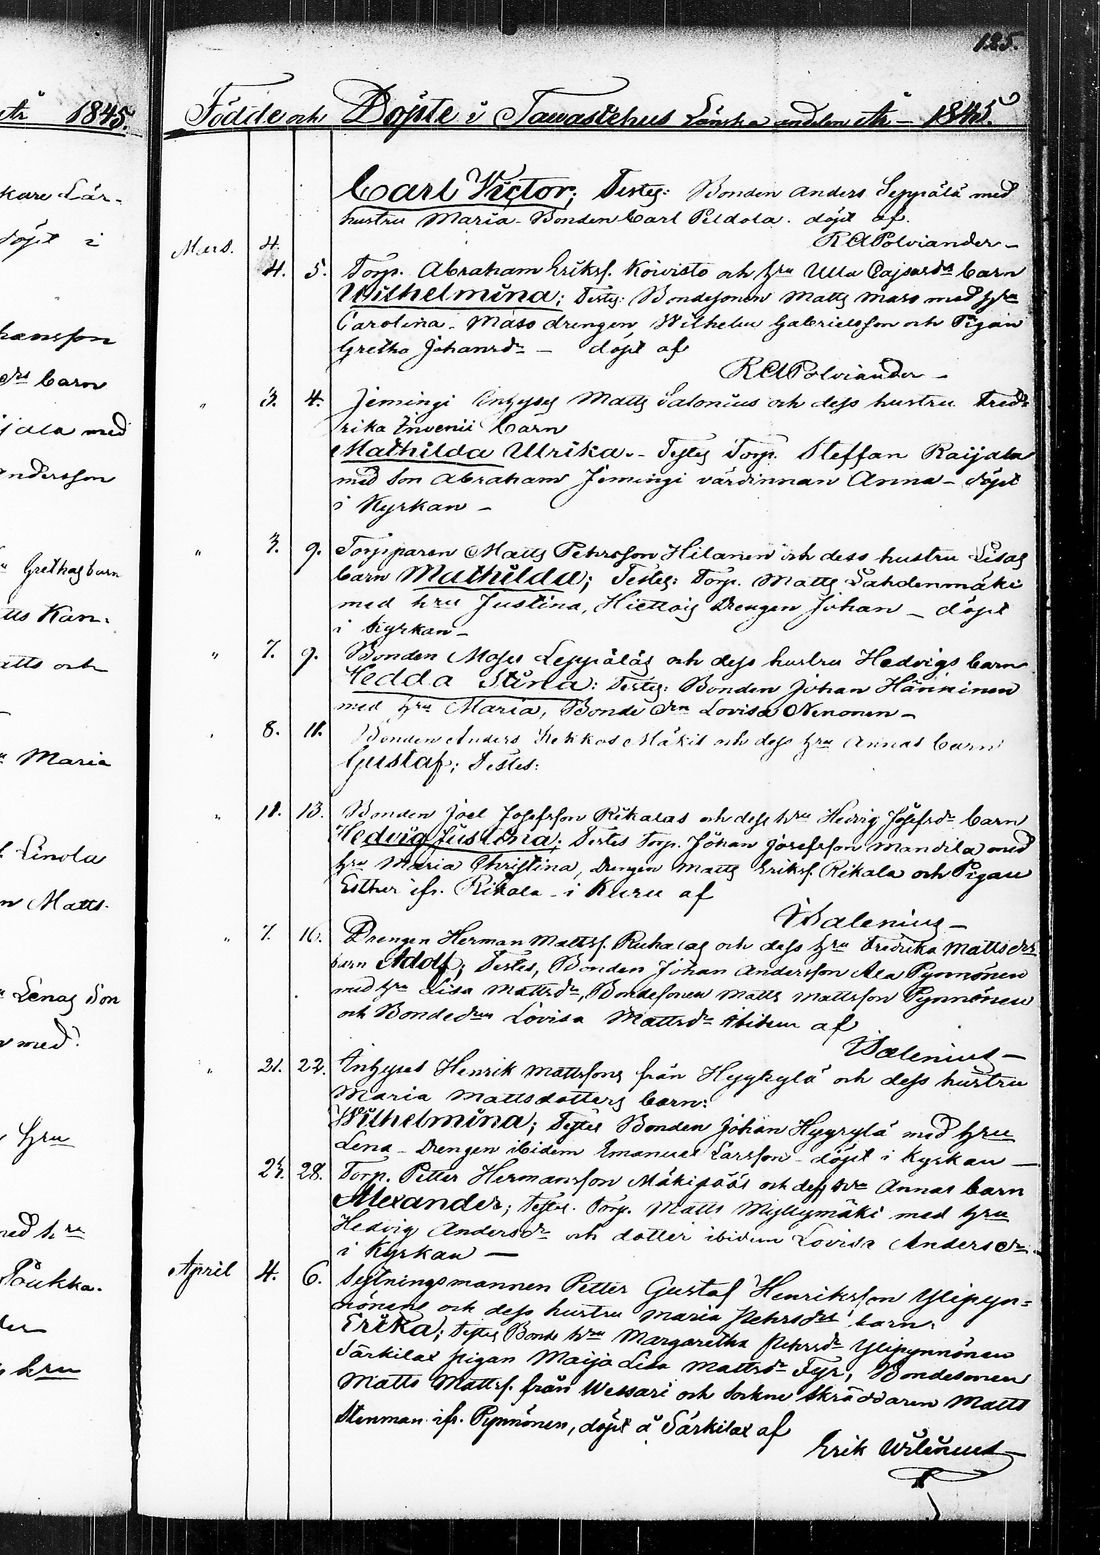 125.
åhr 1845.
Födde och Döpte i Tawastehus Länska andelen År - 1845.
Carl Victor; Testes: Bonden Anders Seppälä med
hustru Maria - Bonden Carl Peldola. döpt af.
Mars. 4. R A Polviander -
4. 5. Torp. Abraham Eriksf. Koivisto och hru Ulla Cajsas barn
Wilhelmina; Testes: Bondesonen Matts Maso med hru
Carolina - Maso drengen, Wilhelm Gabrielsson och Pigan
Gretha Johansdr - döpt af
R A Polviander -
" 3. 4. Jemingi Inhyses Matts Salonius och dess hustru Fred-
rika Envenii barn
Mathilda Ulrika. - Testes Torp. Steffan Raijala
med son Abraham Jemingi värdinnan Anna - döpt
i Kyrkan -
" 3. 9. Torpparen Matts Pehrsson Hilanen och dess hustru Lisas
barn Mathilda; Testes: Torp. Matts Lahdenmäki
med hru Justina, Hiettois Drengen Johan - döpt
i kyrkan -
" 7. 9. Bonden Moses Leppäläs och dess hustru Hedvigs barn
Hedda Stina: Testes: Bonden Johan Hänninen
med hru Maria, Bonde drn Lovisa Nenonen -
" 8. 11. Bonden Anders Mäkis och dess hru Annas barn
Gustaf; Testes:
" 11. 13. Bonden Joel Josefsson Rikalas och dess hru Hedvig Josefsdr barn
Hedvig Justina; Testes Torp. Johan Josefsson Mandila med
hru Maria Christina, Drengen Matts Eriksf. Rikala och Pigan
Esther ifr. Rikala - i Kuru af
Walenius -
" 7. 16. Drengen Herman Mattsf. och dess hru Fredrika Mattsdrs
barn Adolf; Testes, Bonden Johan Andersson Ala Pynnönen
med hr Lisa Mattsdr, Bondesonen Matts Mattsson Pynnönen
och Bondedrn Lovisa Mattsdr ibidem af
Walenius -
" 21. 22. Inhyses Henrik Mattssons från Hyyrylä och dess hustru
Maria Mattsdotters barn:
Wilhelmina; Testes Bonden Johan Hyyrylä med hru
Lena - Drengen ibidem Emanuel Larsson - döpt i Kyrkan -
25. 28. Torp. Petter Hermansson Mäkipääs och dess hru Annas barn
Alexander; Testes. Torp. Matts Myllymäki med hru
Hedvig Andersdr och dotter ibidem Lovisa Andersdr
i Kyrkan -
April 4. 6. Sytningsmannen Petter Gustaf Henriksson Ylipyn-
nönens och dess hustru Maria Pehrsdrs barn
Erika; Testes Bonde hru Margaretha Pehrsdr Ylipynnönen
Särkilax pigan Maija Lisa Mattsdr Fyr, Bondesonen
Matts Mattsf. från Wessari och Sockne skräddaren Matts
Stenman ifr. Pynnönen, döpt å Särkilax af
Erik
kare Lär-
döpt i
hansson
drs barn
jala med
ndersson
Grethas barn
tts Kan-
atts och
Maria
Linola
n Matts
Lenas Son
med
hru
med hru
Poukka.
hru